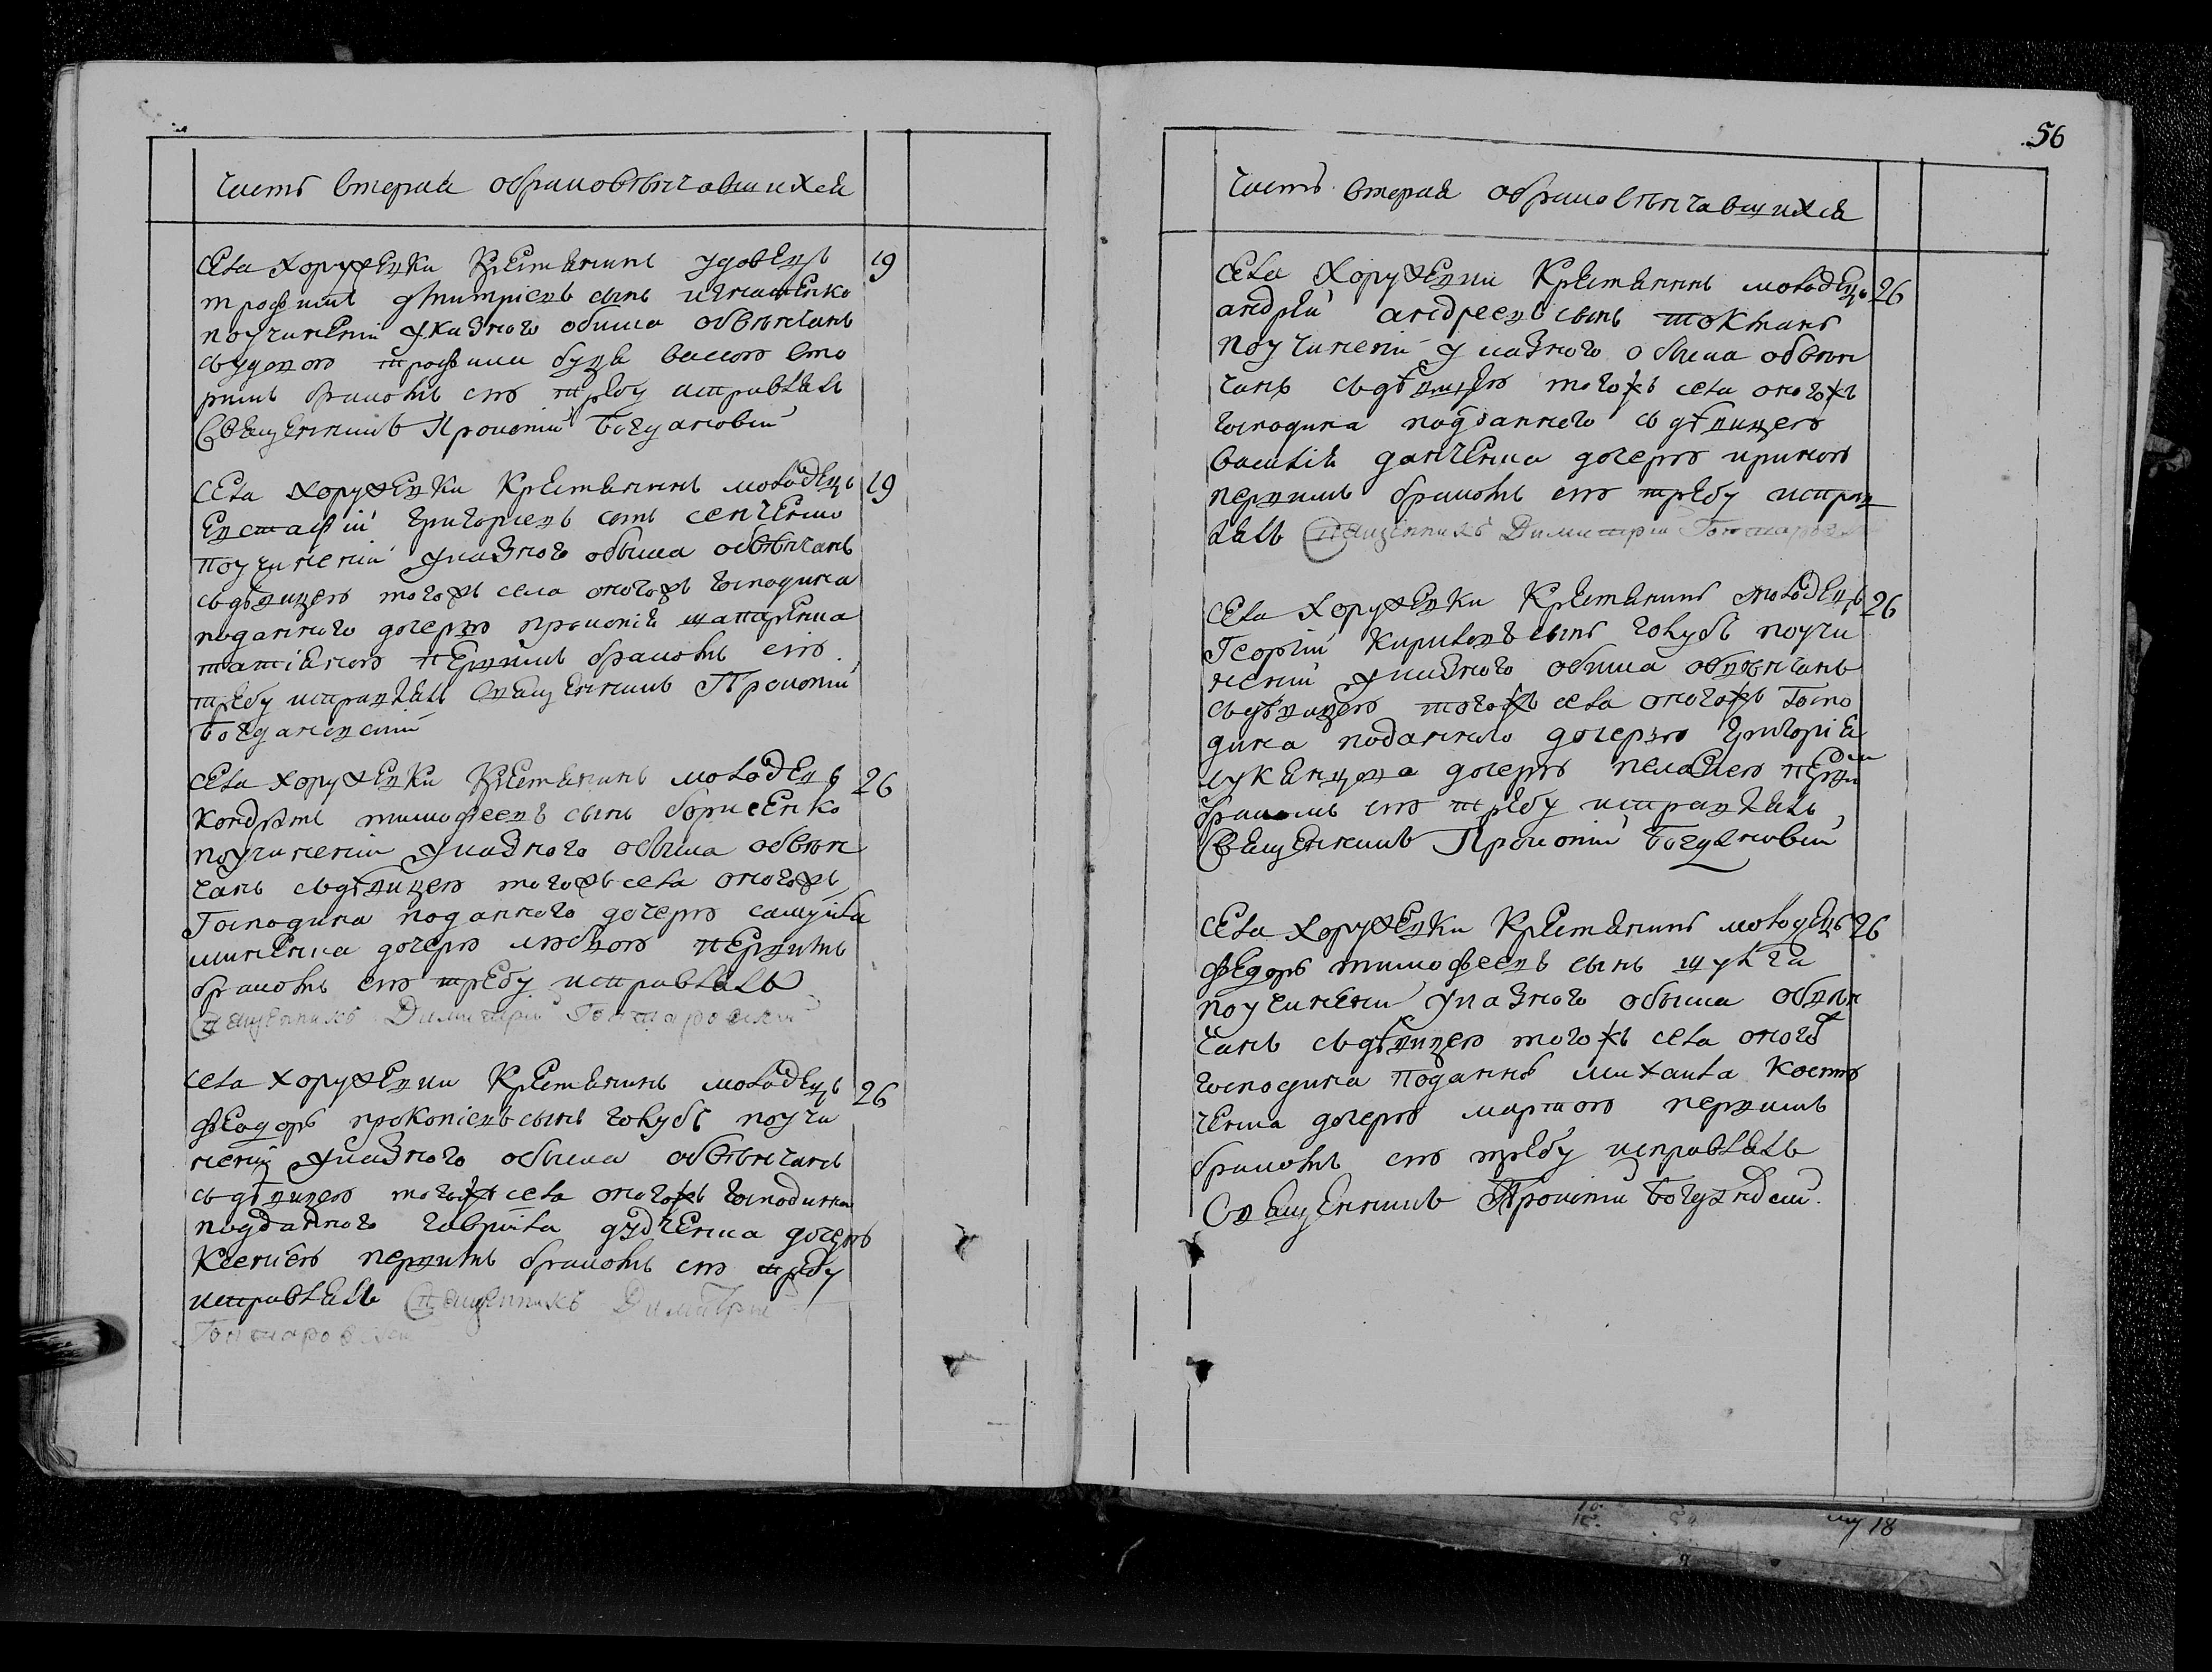 часть вторая обраковѣнчавшихся
села хоружевки крестянинъ удовецъ 19
трофимъ дмитріевъ сынъ игнатенко
поучиненіи указного обиска обвѣнчанъ
съудовою трофима буця васою вто
римъ бракомъ сію требу исправлялъ
Священникъ Прокопій Богдановскій
села хоружевки крестянинъ молодецъ 19
Евстафій григоріевъ сынъ сенченко
поучиненіи указного обиска обвѣнчанъ
съдѣвицею тогожъ села оногожъ господина
поданного дочерю прокопія шапаренка
татіяною первимъ бракомъ сію
требу исправлялъ Священникъ Прокопій
Богдановскій
села хоружевки крестянинъ молодецъ 26
кондратъ тимофеевъ сынъ борисенко
поучиненіи указного обиска обвѣн
чанъ съдѣвицею тогожъ села оногожъ
Господина поданного дочерю самуйла
миненка дочерю любвою первимъ
бракомъ сію требу исправлялъ
Священникъ Димитрій Гонтаровскій
села хоружевки крестянинъ молодецъ 26
феодоръ прокопіевъ сынъ голубъ поучи
неніи указного обиска обвѣнчанъ
съдѣвицею тогожъ села оногожъ господина
подданного гаврила дудченка дочерю
Ксеніею первимъ бракомъ сію требу
исправлялъ Священникъ Димитрій
Гонтаровскій
56
часть вторая обраковѣнчавшихся
села хоружевки крестянинъ молодецъ 26
андрей андреевъ сынъ токманъ
поучиненіи указного обиска обвѣн
чанъ съдѣвицею тогожъ села оногожъ
господина подданного съдѣвицею
василія данченка дочерю ириною
первимъ бракомъ сію требу исправ
лялъ Священникъ Димитрій Гонтаровскій
села хоружевки крестянинъ молодецъ 26
Георгій кириловъ сынъ голубъ поучи
неніи указного обиска обвѣнчанъ
съдѣвицею тогожъ села оногожъ Госпо
дина поданного дочерю григорія
лукянцова дочерю пелагіею первим
бракомъ сію требу исправлялъ
Священникъ Прокопій Богдановскій
села хоружевки крестянинъ молодецъ 26
федоръ тимофеевъ сынъ шулга
поучиненіи указного обиска обвѣн
чанъ съдѣвицею тогожъ села оного
господина поданного михаила костю
ченка дочерю марфою первимъ
бракомъ сію требу исправлялъ
Священникъ Прокопій Богдановскій
18